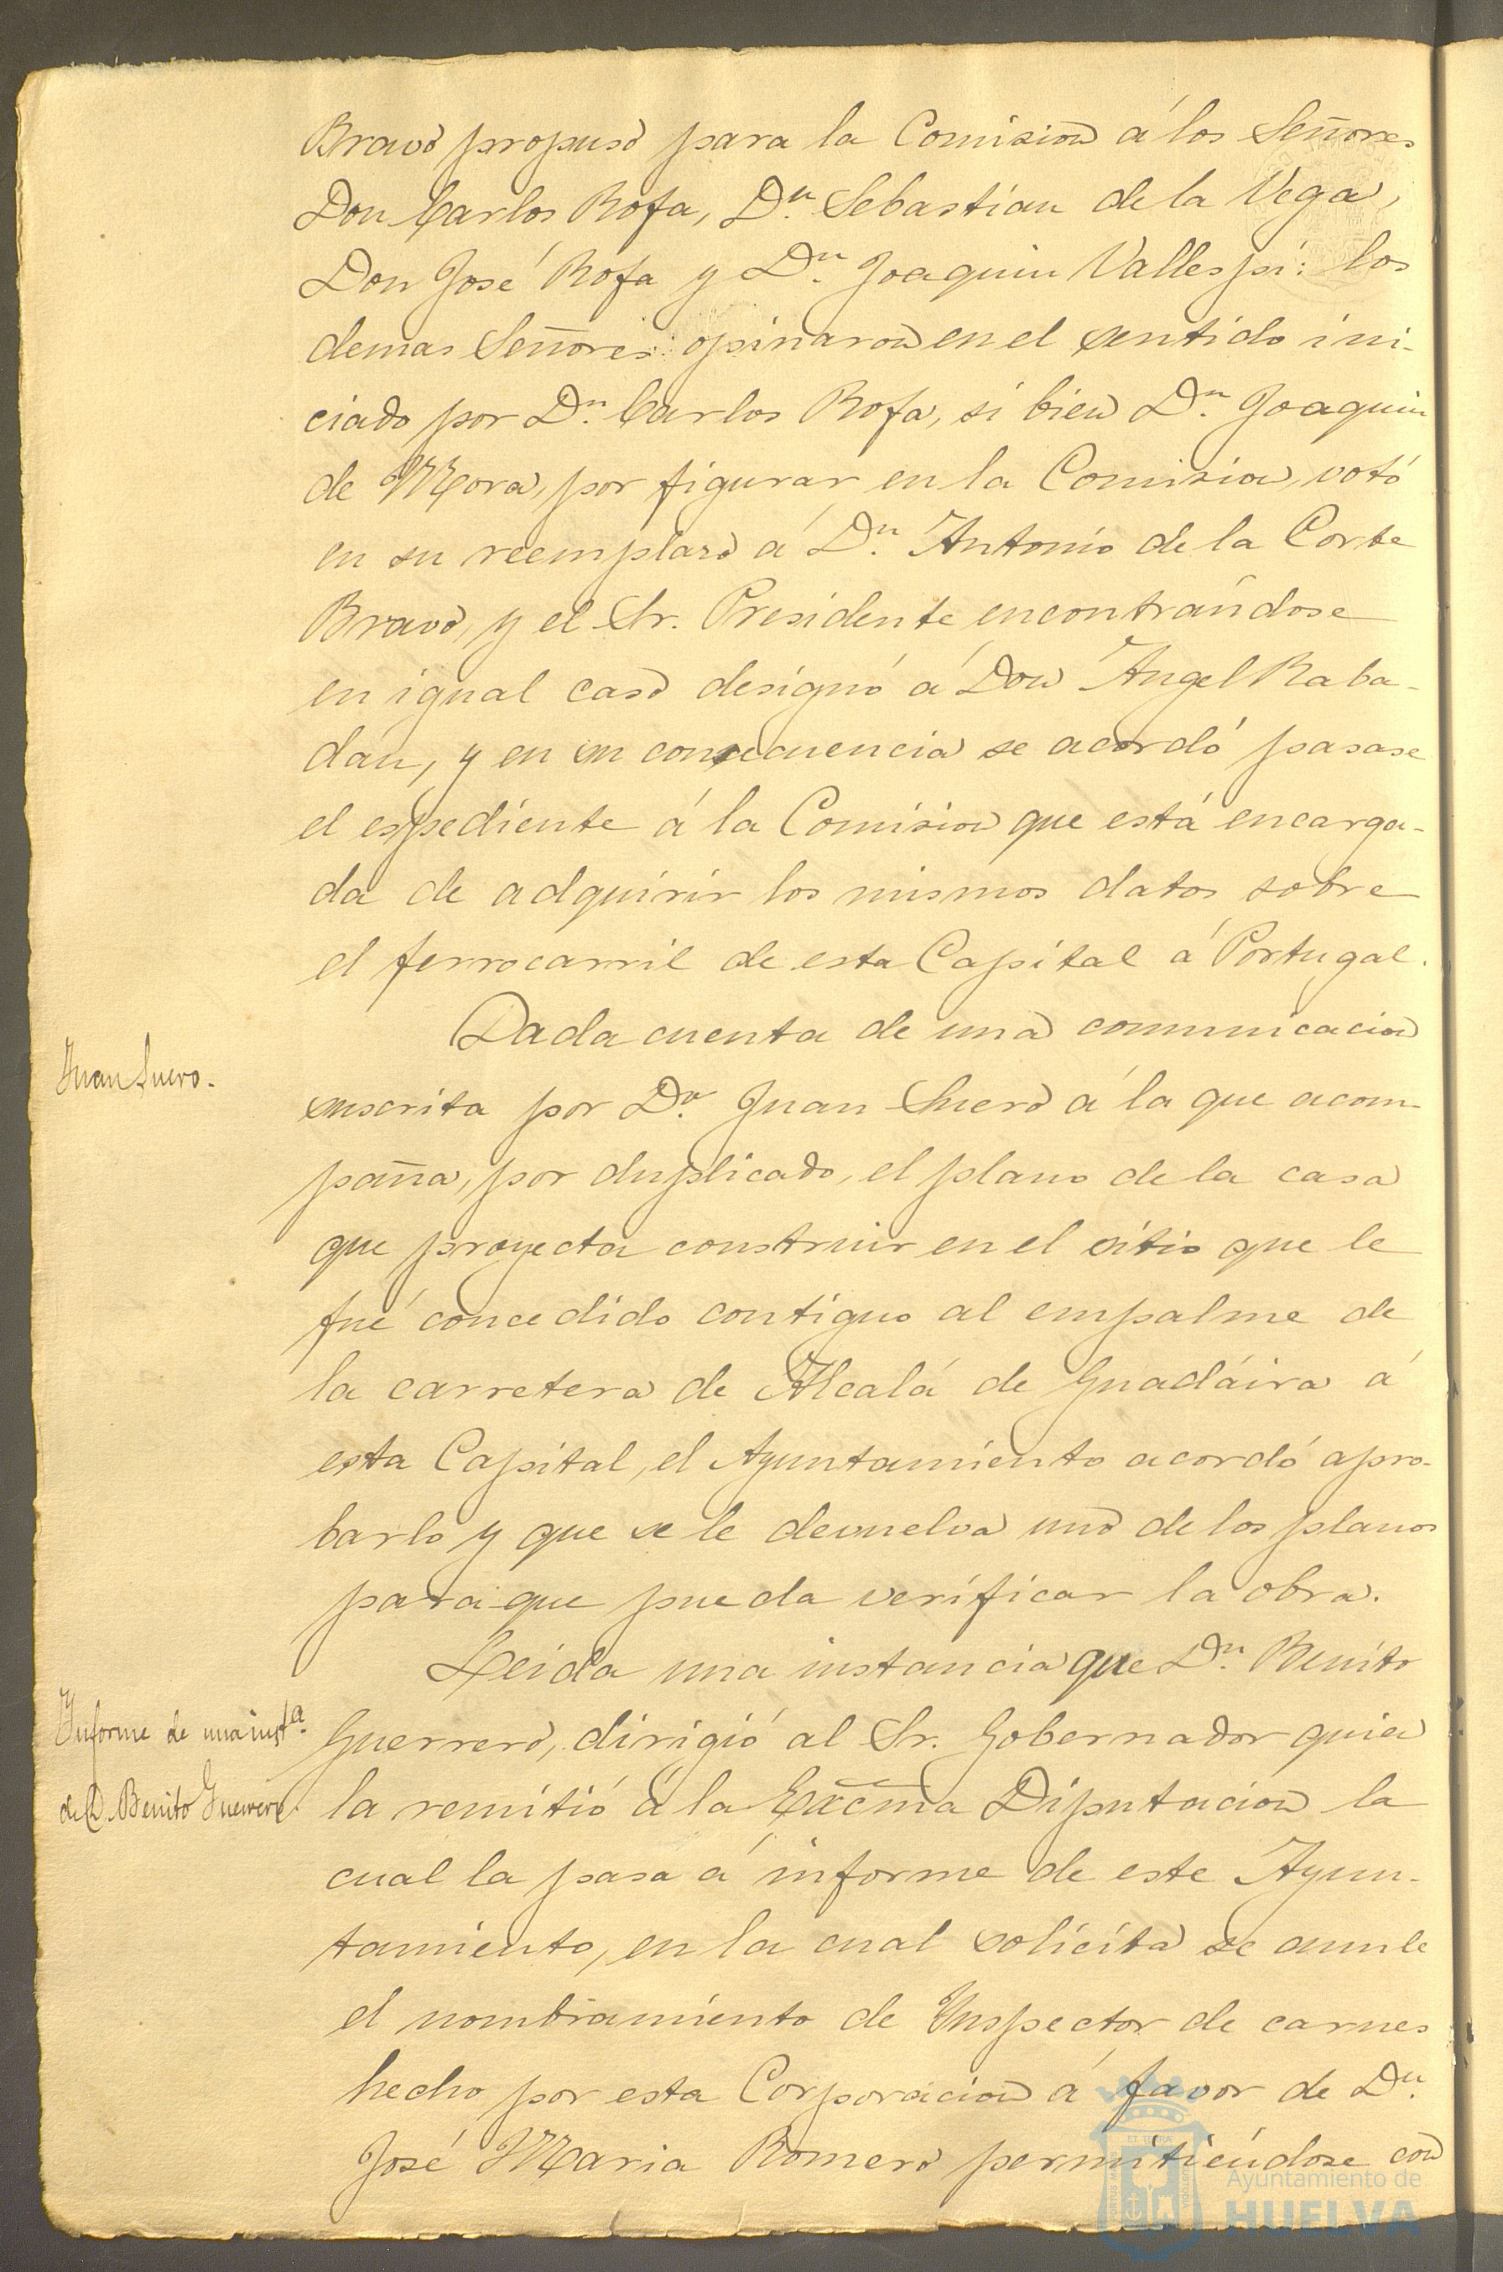 Bravo propuso para la Comision á los Señores
Don Carlos Rofa, Dn. Sebastian de la Vega,
Don José Rofa y Dn. Joaquin Vallespi: los
demas Señores opinaron en el sentido ini-
ciado por Dn. Carlos Rofa, si bien Dn. Joaquin
de Mora, por figurar en la Comision, votó
en su reemplazo á Dn. Antonio de la Corte
Bravo, y el Sr. Presidente encontrándose
en igual caso designó á Don Angel Raba-
dan, y en su consecuencia se acordó pasase
el espediente á la Comision que está encarga-
da de adquirir los mismos datos sobre
el ferrocarril de esta Capital á Portugal.
Juan Suero.
Dada cuenta de una comunicacion
suscrita por Dn. Juan Suero á la que acom-
paña, por duplicado, el plano de la casa
que proyecta construir en el sitio que le
fué concedido contiguo al empalme de
la carretera de Alcalá de Guadáira á
esta Capital, el Ayuntamiento acordó apro-
barlo y que se le devuelva uno de los planos
para que pueda verificar la obra.
Informe de una insta.
de D. Benito Guerrero.
Leida una instancia que Dn. Benito
Guerrero, dirigió al Sr. Gobernador quien
la remitió á la Excma Diputacion la
cual la pasa á informe de este Ayun-
tamiento, en la cual solicita se anule
el nombramiento de Inspector de carnes
hecho por esta Corporacion á favor de Dn.
José Maria Romero permitiéndose con
Ayuntamiento de
HUELVA